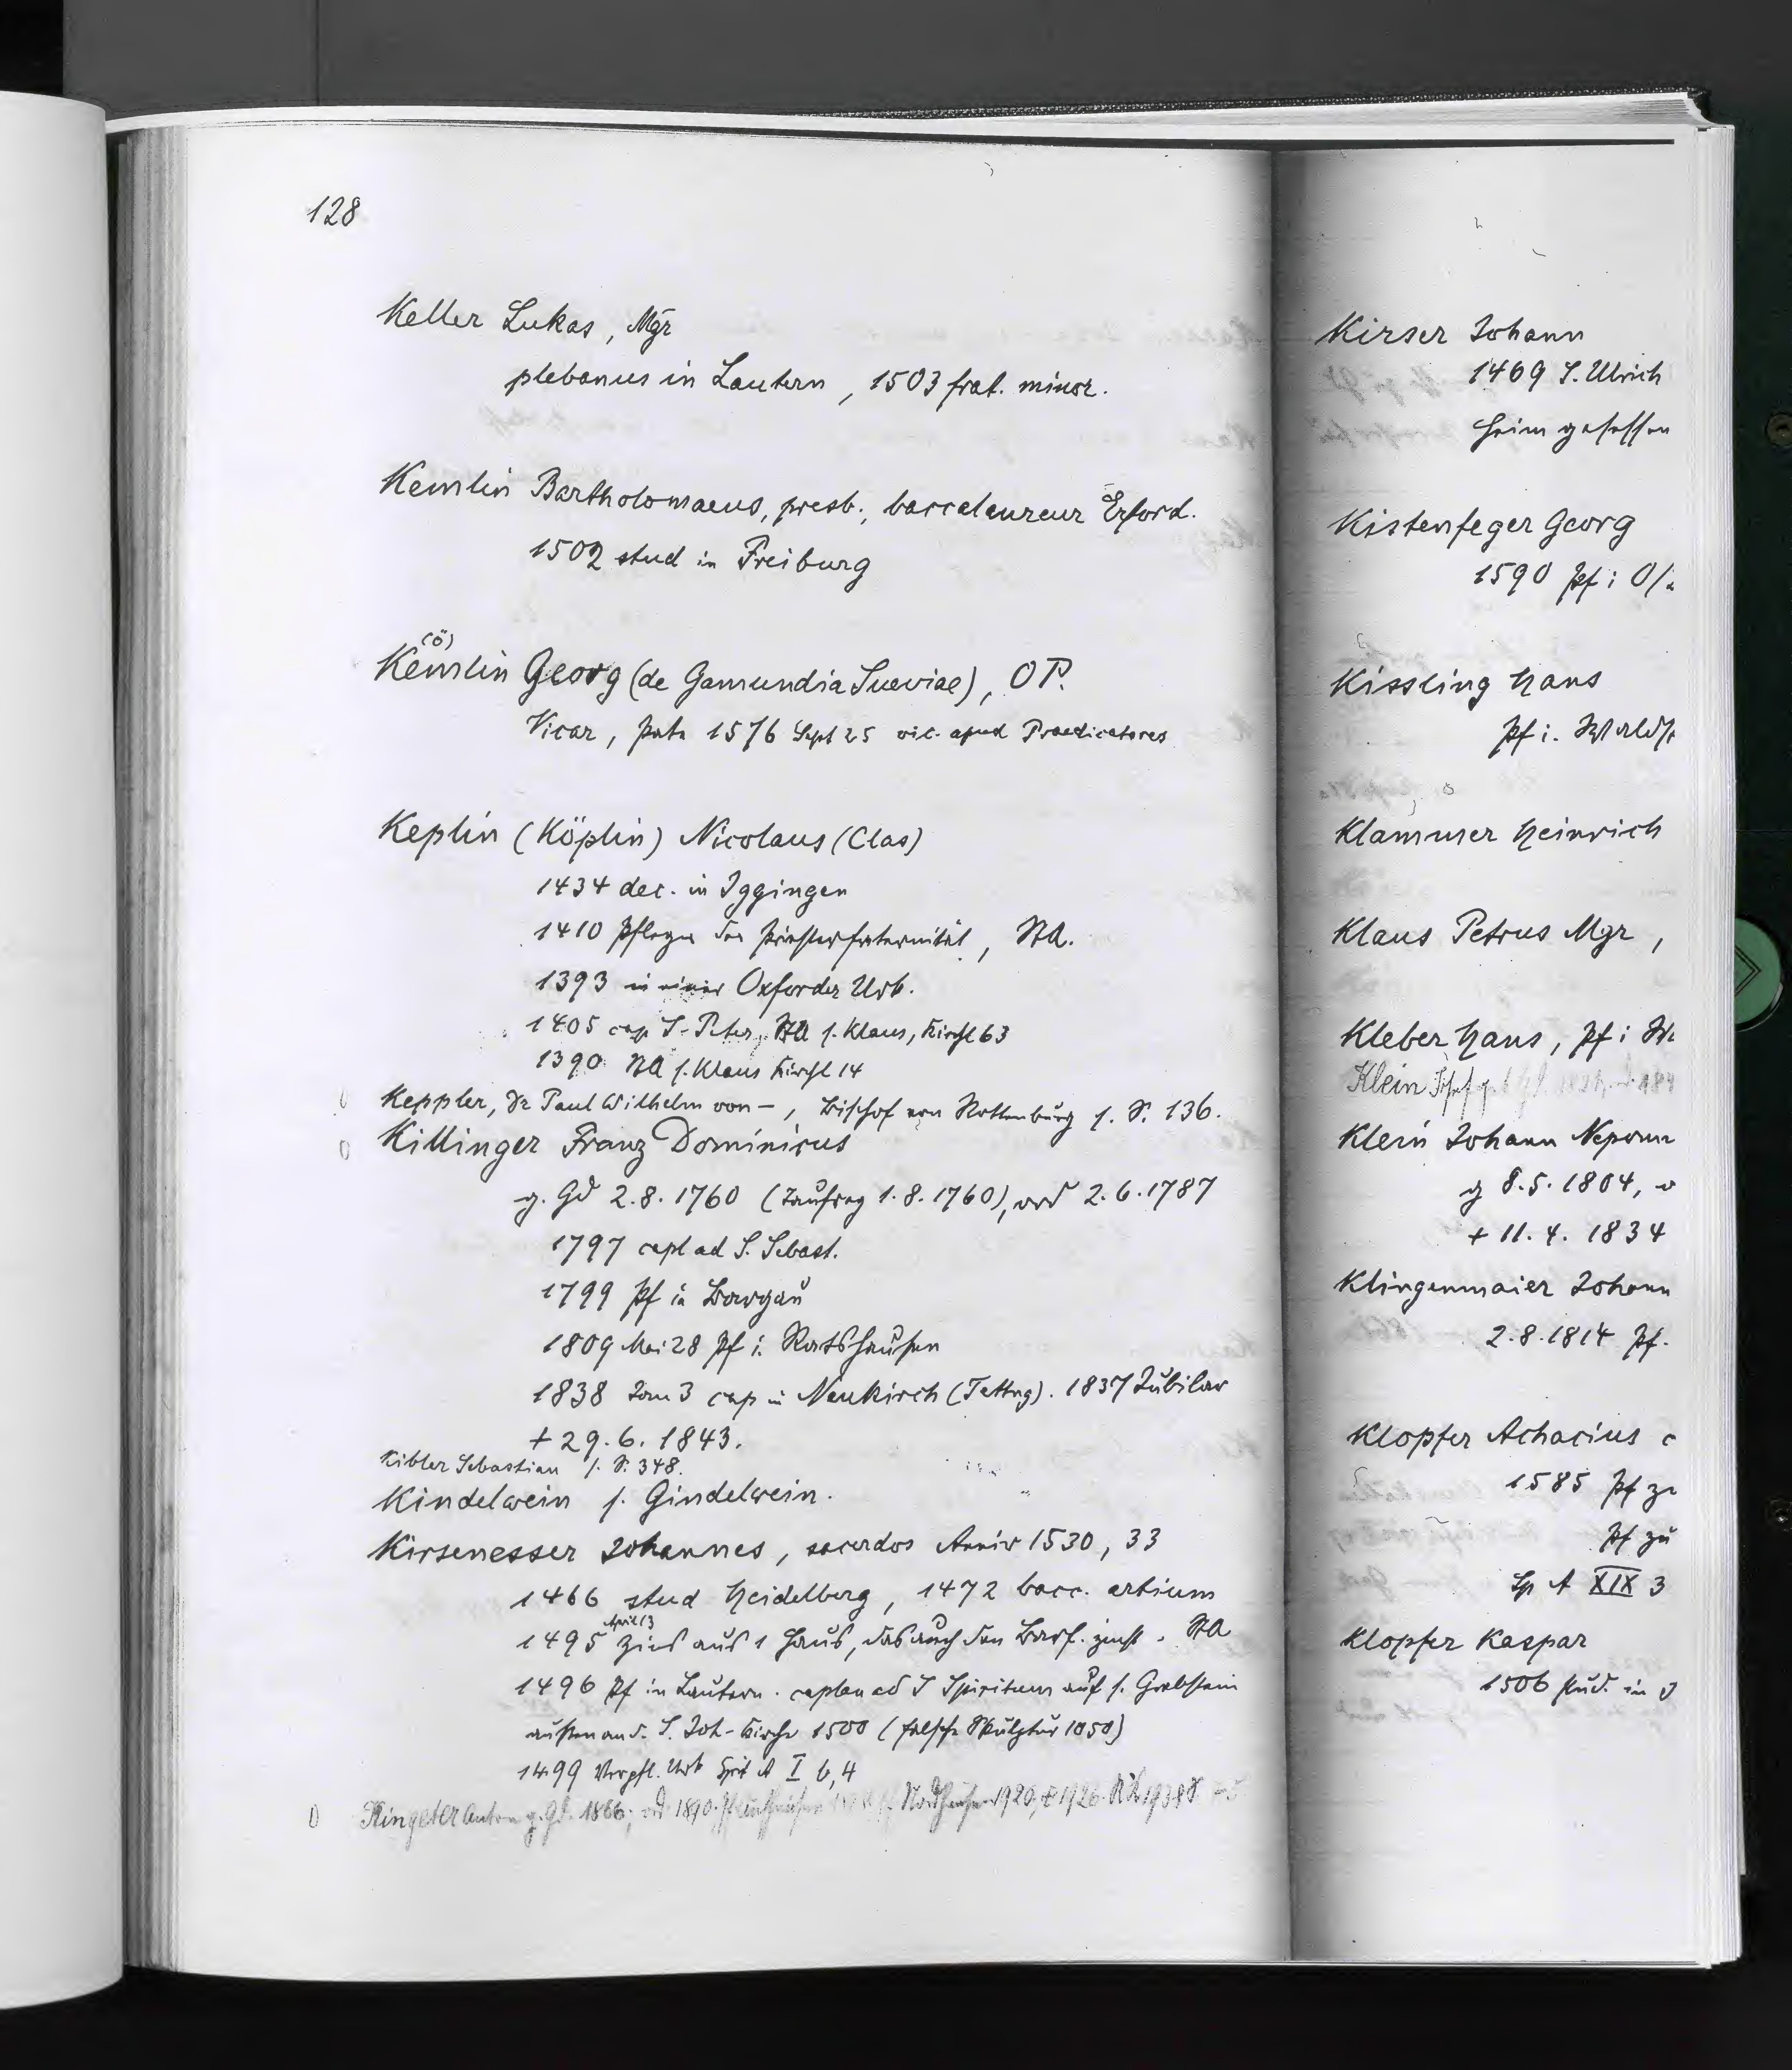 128
Keller Lukas, Mgr
plebanus in Lautern, 1503 frat. minor.
Kemlin Bartholomaeus, presb., baccalaureur Erford.
1502 stud in Freiburg
(ö)
Kemlin Georg (de Gamundia Sueviae), OP.
Vicar, Pate 1576 Sept 25 vic. apud Praedicatores
Keplin (Köplin) Nicolaus (Clas)
1434 dec. in Iggingen
1410 Pfleger der Priesterfraternität, StA.
1393 in einer Oxforder Urk.
1405 cap S. Peter, StA s. Klaus, Kirchl 63
1390 StA s. Klaus Kirchl 14
Keppler, Dr Paul Wilhelm von –, Bischof von Rottenburg s. S. 136.
Killinger Franz Dominicus
g. Gd 2.8.1760 (Tauftag 1.8.1760), ord 2.6.1787
1797 capl ad S. Sebast.
1799 Pf in Bargau
1809 Mai 28 Pf i. Ratshausen
1838 Jan 3 cap in Neukirch (Tettng). 1837 Jubilar
+ 29.6.1843.
Kibler Sebastian s. S. 348.
Kindelwein s. Gindelwein.
Kirsenesser Johannes, sacerdos Anniv 1530, 33
1466 stud Heidelberg, 1472 bacc. artium
April 13
1495 Zins aus 1 Haus, das auch den Barf. zinst. StA
1496 Pf in Lautern. caplan ad S Spiritum auf s. Grabstein
außen an d. S. Joh-Kirche 1500 (falsche Skulptur 1050)
1499 Verpfl. Urk Spit A I b, 4
Ringeter Anton g. Gd. 1866; ord 1890. Pf 1920, + 1926
Kirser Johann
1469 S. Ulrich
heim gesessen
Kistenfeger Georg
1590 Pf i
Kissling Hans
Pf i. Wald
Klammer Heinrich
Klaus Petrus Mgr,
Kleber Hans, Pf i
Klein
Klein Johann Nepom
g 8.5.1804,
+ 11.4. 1834
Klingenmaier Johann
2.8.1814 Pf.
Klopfer Achacius
1585 Pf zu
Pf zu
Sp A XIX 3
Klopfer Kaspar
1506 stud. in